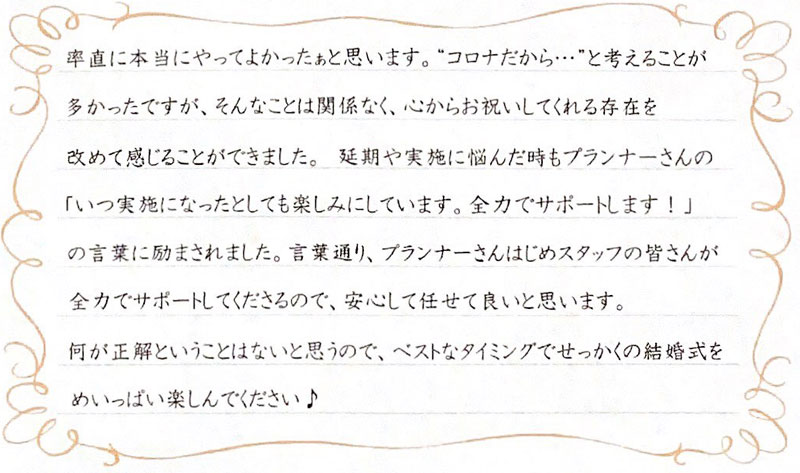 率直に本当にやってよかったぁと思います。“コロナだから…”と考えることが
多かったですが、そんなことは関係なく、心からお祝いしてくれる存在を
改めて感じることができました。 延期や実施に悩んだ時もプランナーさんの
「いつ実施になったとしても楽しみにしています。全力でサポートします！」
の言葉に励まされました。言葉通り、プランナーさんはじめスタッフの皆さんが
全力でサポートしてくださるので、安心して任せて良いと思います。
何が正解ということはないと思うので、ベストなタイミングでせっかくの結婚式を
めいっぱい楽しんでください♪